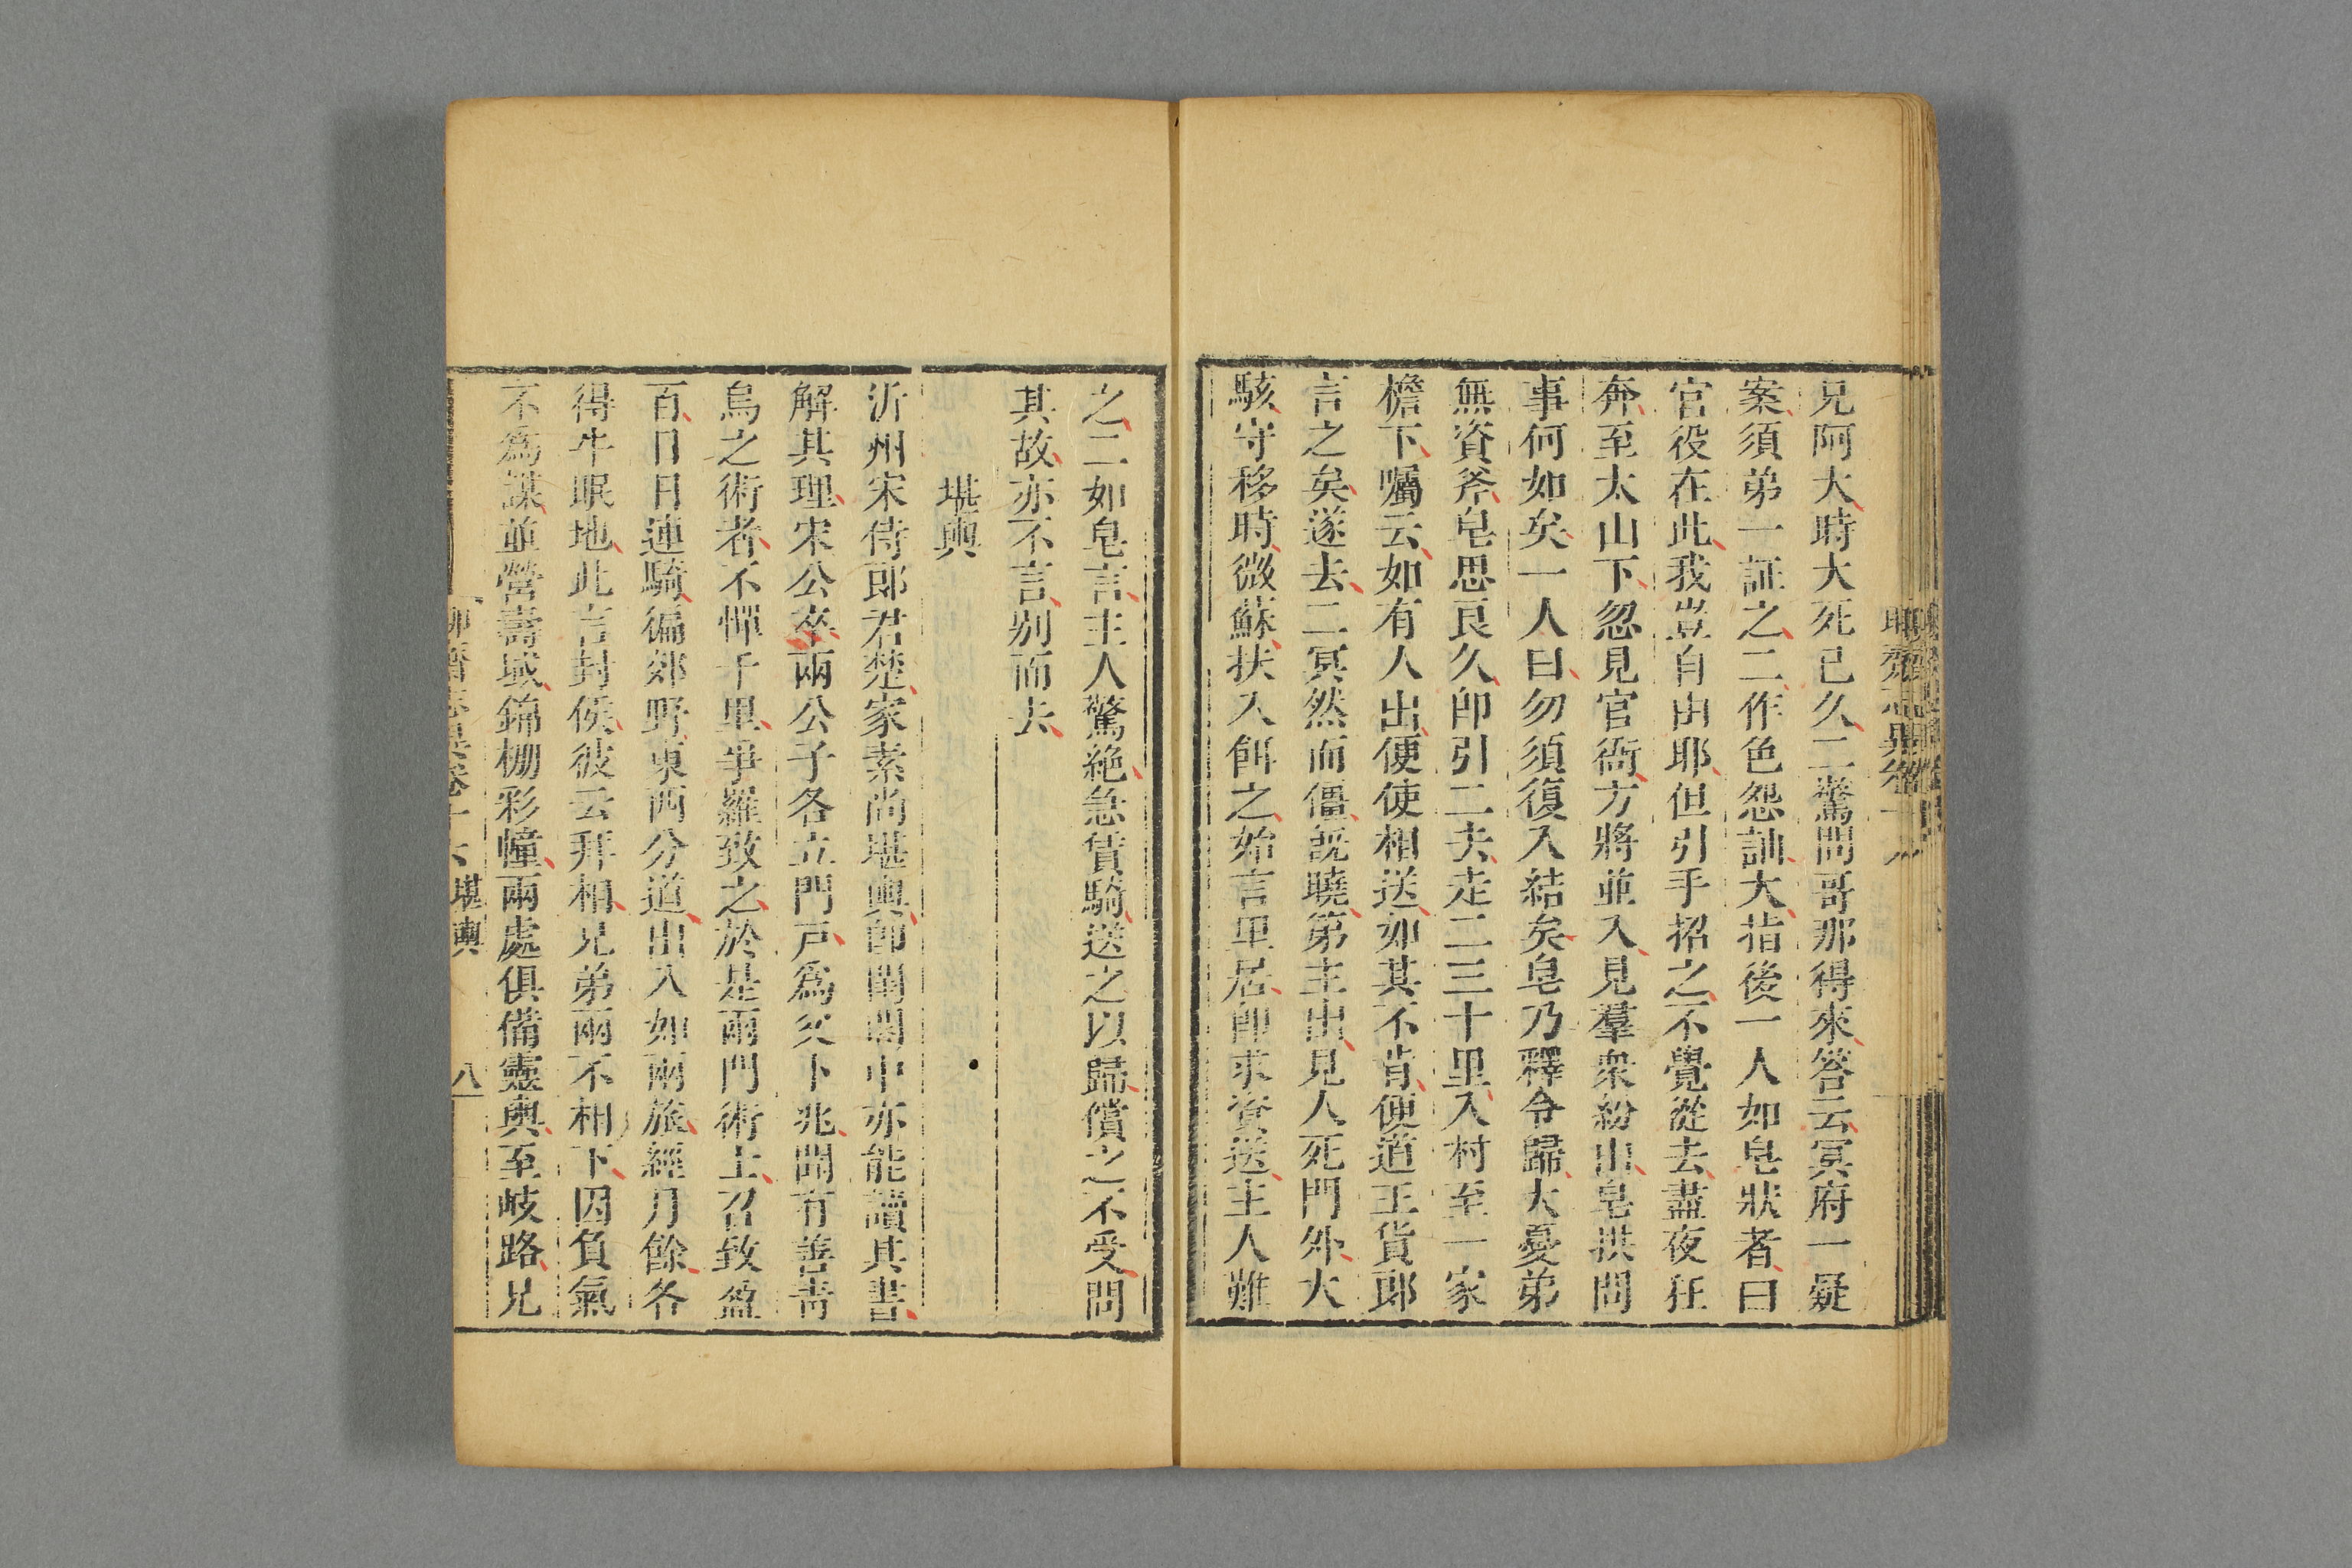 兄阿大時大死已久二驚問哥那得來答云冥府一疑
案須弟一証之二作色怨訕大指後一人如皂狀者曰
官役在此我豈自由耶但引手招之不覺從去盡夜狂
奔至太山下忽見官衙方將並入見羣衆紛出皂拱問
事何如矣一人曰勿須復入結矣皂乃釋令歸大憂弟
無資斧皂思良久卽引二去走二三十里入村至一家
檐下囑云如有人出便使相送如其不肯便道王貨郎
言之矣遂去二冥然而僵旣曉第主出見人死門外大
駭守移時微蘇扶入餌之始言里居卽求資送主人難
之二如皂言主人驚絶急賃騎送之以歸償之不受問
其故亦不言别而去
堪輿
沂州宋侍郎君楚家素尚堪輿卽閨閤中亦能讀其書
解其理宋公卒兩公子各立門戸爲父卜兆聞有善靑
烏之術者不憚千里爭羅致之於是兩門術士召致盈
百日日連騎徧郊野東西分道出入如兩旅經月餘各
得牛眠地此言封侯彼云拜相兄弟兩不相下因負氣
不爲謀並營壽域錦棚彩幢兩處俱備靈輿至岐路兄
堪輿
八